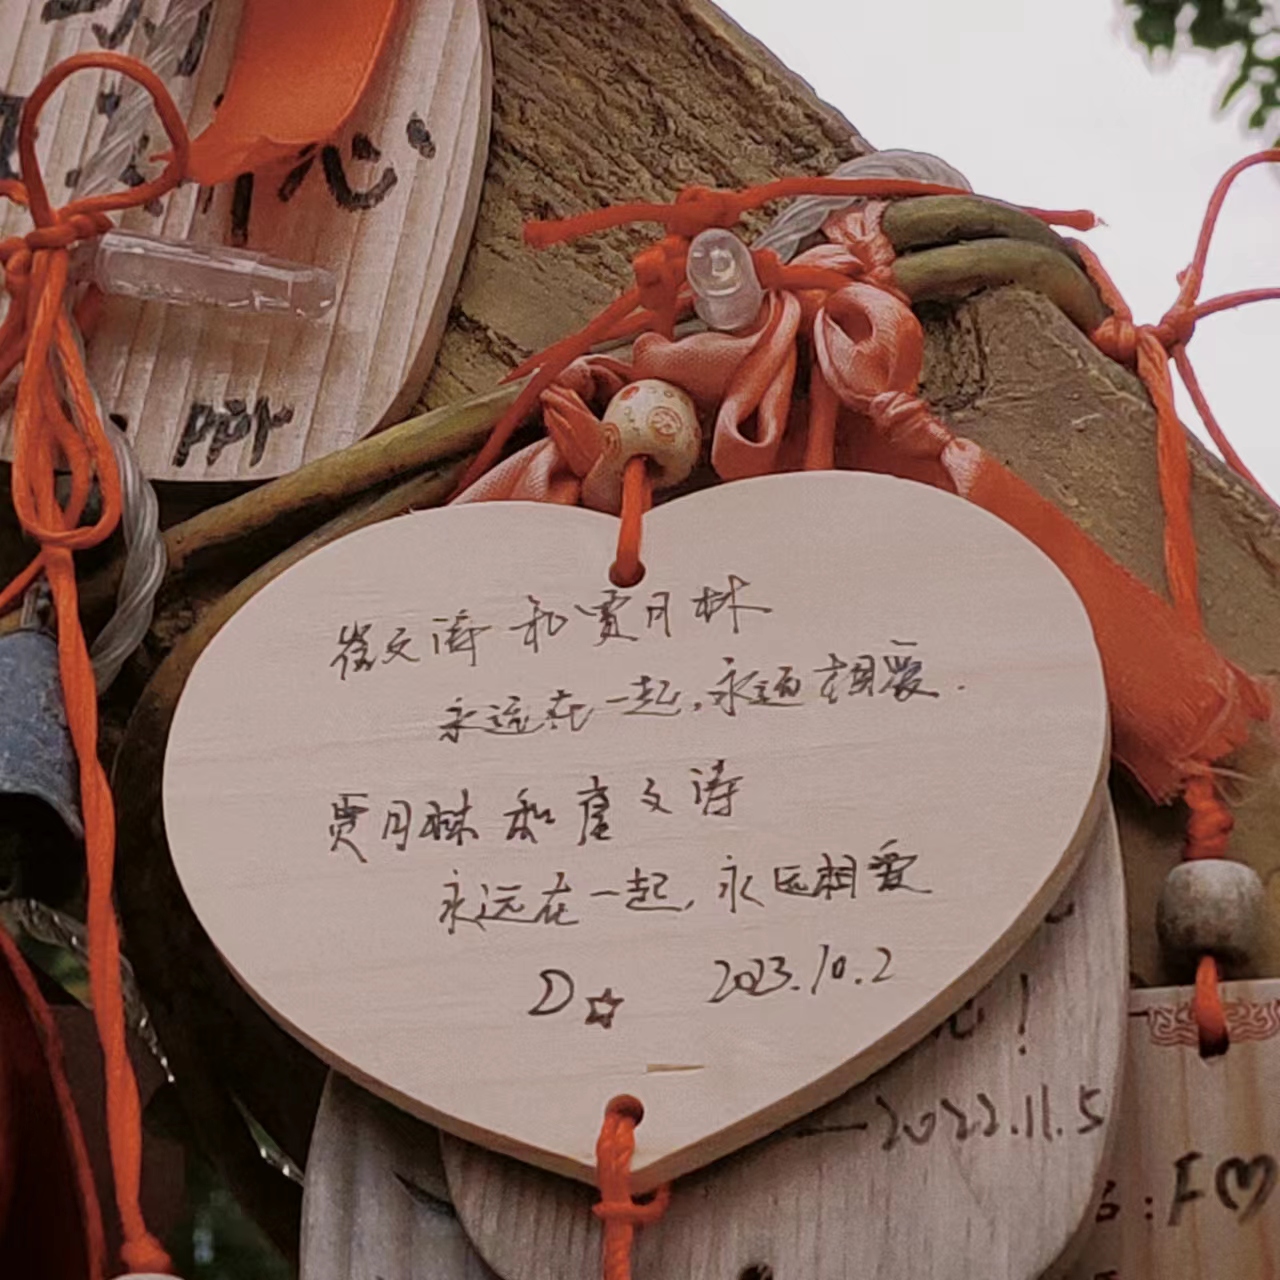 心
ppr
崔文涛和贾月林
永远在一起,永远相爱.
贾月林和崔文涛
永远在一起,永远相爱
D☆ 2023.10.2
!
—2022.11.5
:F♡